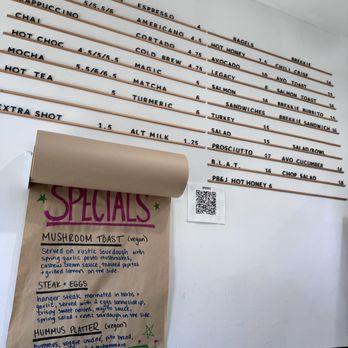 ESPRESSO 4
CAPPUCCINO 5/5.5/6
AMERICANO 4
CHAI
CORTADO
HOT CHOC 4.5/5/5.5
COLD BREW
MOCHA
MAGIC
HOT TEA 5
MATCHA
TURMERIC 6
EXTRA SHOT 1.5
ALT MILK 1.25
BAGELS
HOT HONEY
AVOCADO
LEGACY
SALMON
SANDWICHES
TURKEY
SALAD
PROSCIUTTO 17
B.L.A.T. 16
PB&J HOT HONEY 6
BREKKIE
CHILI CRISP
AVO TOAST
SALMON TOAST
BREKKIE BURRITO
BREKKIE SANDWICH
SALAD/BOWL
AVO CUCUMBER
CHOP SALAD
SPECIALS
MUSHROOM TOAST (vegan)
Served on rustic sourdough with
spring garlic pesto mushrooms,
cashew cream sauce, toasted pepitas
+ grilled lemon on the side.
STEAK + EGGS
hanger steak marinated in herbs +
garlic, served with 2 eggs sunnyside up,
crispy sweet onions,
spring salad + rustic sourdough on the side.
HUMMUS PLATTER (vegan)
hummus, veggie crudité, pita bread,